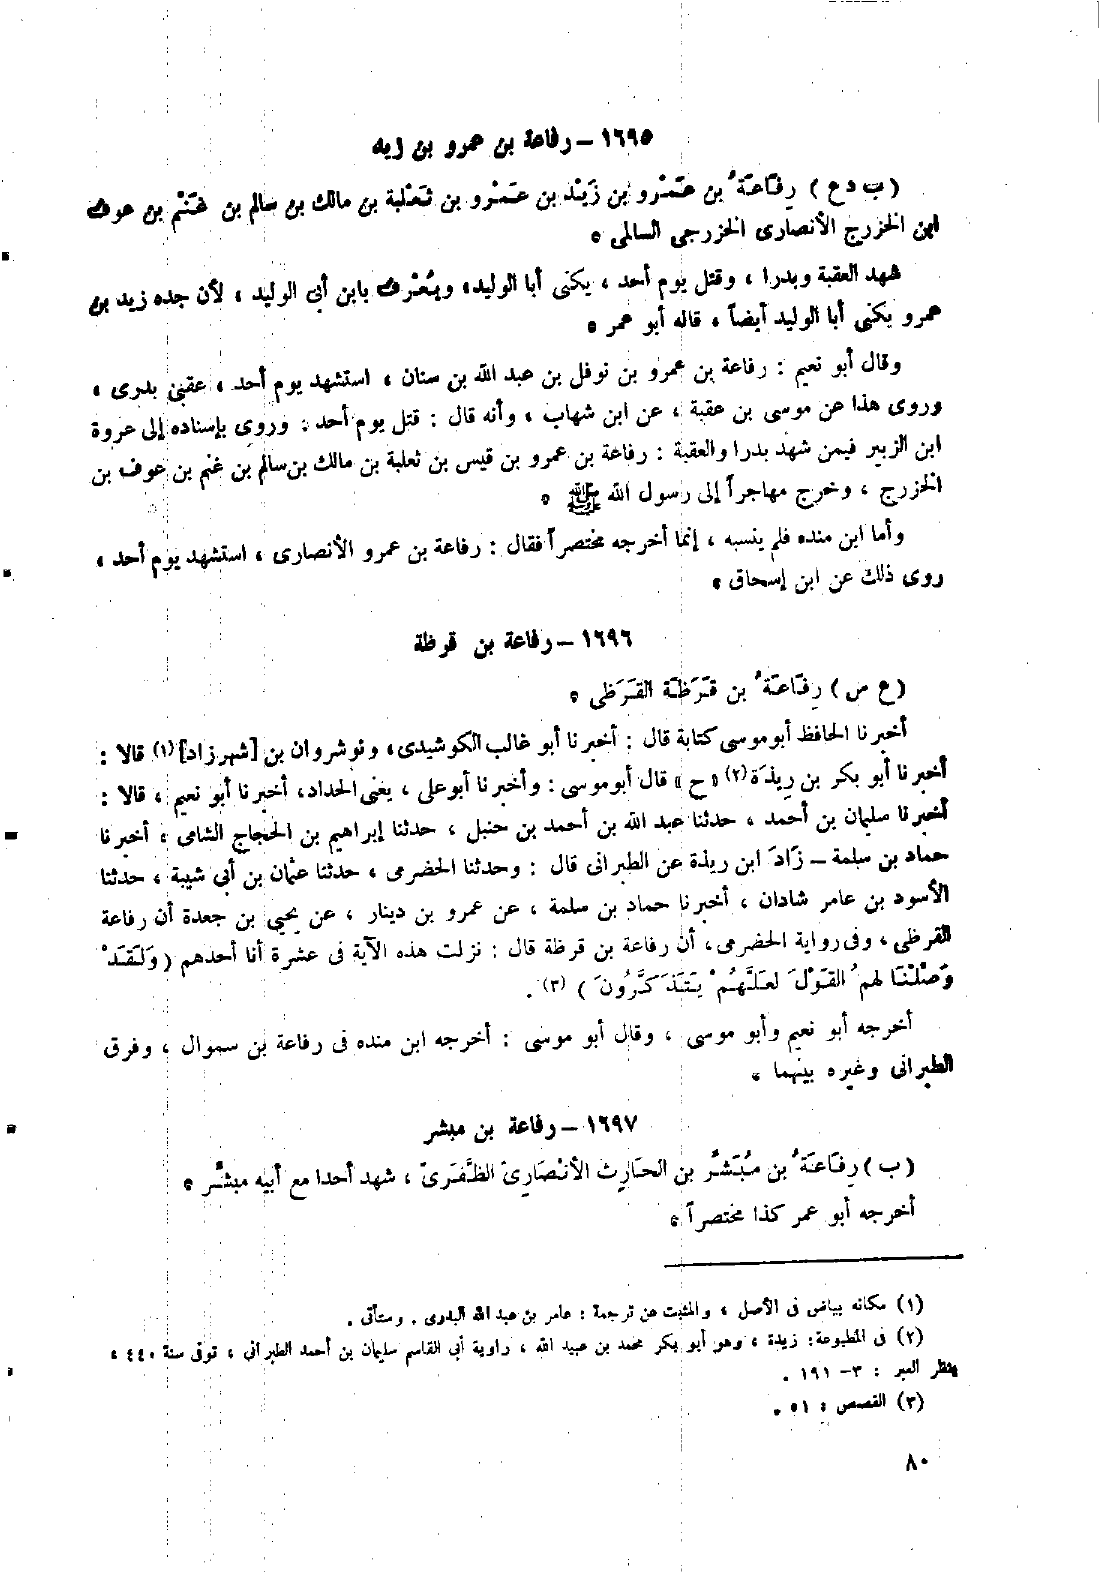 ١٦٩٥ – رفاعة بن عمرو بن زيد
(ب د ع) رِفَاعَةُ بن عَمْرو بن زَيْد بن عَمْرو بن ثَعْلبة بن مالك بن سالم بن غَنْم بن عوف
ابن الخزرج الأنصارى الخزرجى السالمى .
شهد العقبة وبدرا ، وقتل يوم أحد ، يكنى أبا الوليد، ويُعْرف بابن أبى الوليد ، لأن جده زيد بن
عمرو يكنى أبا الوليد أيضاً ، قاله أبو عمر .
وقال أبو نعيم : رفاعة بن عمرو بن نوفل بن عبد الله بن سنان ، استشهد يوم أحد ، عقبى بدرى ،
وروى هذا عن موسى بن عقبة ، عن ابن شهاب ، وأنه قال : قتل يوم أحد : وروى بإسناده إلى عروة
ابن الزبير فيمن شهد بدرا والعقبة : رفاعة بن عمرو بن قيس بن ثعلبة بن مالك بن سالم بن غنم بن عوف بن
الخزرج ، وخرج مهاجراً إلى رسول الله ﷺ .
وأما ابن منده فلم ينسبه ، إنما أخرجه مختصراً فقال : رفاعة بن عمرو الأنصارى ، استشهد يوم أحد ،
روى ذلك عن ابن إسحاق .
١٦٩٦ – رفاعة بن قرظة
(ع س) رِفَاعَةُ بن قَرَظَة القَرَظى .
أخبرنا الحافظ أبو موسى كتابة قال : أخبرنا أبو غالب الكوشيدى، ونوشروان بن [شهرزاد] (١) قالا :
أخبرنا أبو بكر بن رِيذَة (٢) « ح » قال أبو موسى : وأخبرنا أبو على ، يعنى الحداد، أخبرنا أبو نعيم ، قالا :
أخبرنا سليمان بن أحمد ، حدثنا عبد الله بن أحمد بن حنبل ، حدثنا إبراهيم بن الحجاج الشامى ، أخبرنا
حماد بن سلمة – زَادَ ابن ريذة عن الطبرانى قال : وحدثنا الحضرمى ، حدثنا عثمان بن أبى شيبة ، حدثنا
الأسود بن عامر شاذان ، أخبرنا حماد بن سلمة ، عن عمرو بن دينار ، عن يحيى بن جعدة أن رفاعة
القرظى ، وفى رواية الحضرمى، أن رفاعة بن قرظة قال : نزلت هذه الآية فى عشرة أنا أحدهم ( وَلَقَدْ
وَصَّلْنَا لهم القَوْلَ لَعَلَّهُمْ يَتَذَكَّرُونَ ) (٣) .
أخرجه أبو نعيم وأبو موسى ، وقال أبو موسى : أخرجه ابن منده فى رفاعة بن سموال ، وفرق
الطبرانى وغيره بينهما .
١٦٩٧ – رفاعة بن مبشر
(ب) رِفَاعَةُ بن مُبَشِّر بن الحَارِث الأنْصَارِىّ الظَّفَرِىّ ، شهد أحدا مع أبيه مبشِّر .
أخرجه أبو عمر كذا مختصراً .
(١) مكانه بياض فى الأصل ، والمثبت عن ترجمة : عامر بن عبد الله البدرى . وستأتى .
(٢) فى المطبوعة : زيدة ، وهو أبو بكر محمد بن عبيد الله ، راوية أبى القاسم سليمان بن أحمد الطبرانى ، توفى سنة ٤٤٠ ،
ينظر العبر : ٣– ١٩١ .
(٣) القصص : ٥١ .
٨٠